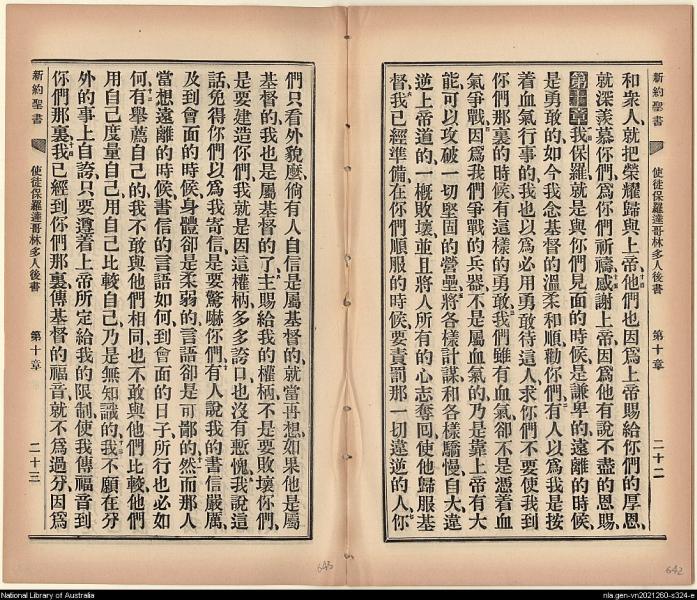 新約聖書 使徒保羅達哥林多人後書 第十章 二十二
和衆人就把榮耀歸與上帝他們也因爲上帝賜給你們的厚恩
就深羨慕你們爲你們祈禱感謝上帝因爲他有說不盡的恩賜
第十章 我保羅就是與你們見面的時候是謙卑的遠離的時候
是勇敢的如今我念基督的溫柔和順勸你們有人以爲我是按
着血氣行事的我也以爲必用勇敢待這人求你們不要使我到
你們那裏的時候有這樣的勇敢我們雖有血氣卻不是憑着血
氣爭戰因爲我們爭戰的兵器不是屬血氣的乃是靠上帝有大
能可以攻破一切堅固的營壘將各樣計謀和各樣驕慢自大違
逆上帝道的一槪敗壞並且將人所有的心志奪回使他歸服基
督我已經準備在你們順服的時候要責罰那一切違逆的人你
新約聖書 使徒保羅達哥林多人後書 第十章 二十三
們只看外貌麼倘有人自信是屬基督的就當再想如果他是屬
基督的我也是屬基督的了主賜給我的權柄不是要敗壞你們
是要建造你們我就是因這權柄多多誇口也沒有慙愧我說這
話免得你們以爲我寄信是要驚嚇你們有人說我的書信嚴厲
及到會面的時候身體卻是柔弱的言語卻是可鄙的然而那人
當想遠離的時候書信的言語如何到會面的日子所行也必如
何有舉薦自己的我不敢與他們相同也不敢與他們比較他們
用自己度量自己用自己比較自己乃是無知識的我不願在分
外的事上自誇只要遵着上帝所定給我的限制使我傳福音到
你們那裏我已經到你們那裏傳基督的福音就不爲過分因爲
643
642
National Library of Australia
nla.gen-vn2021260-s324-e